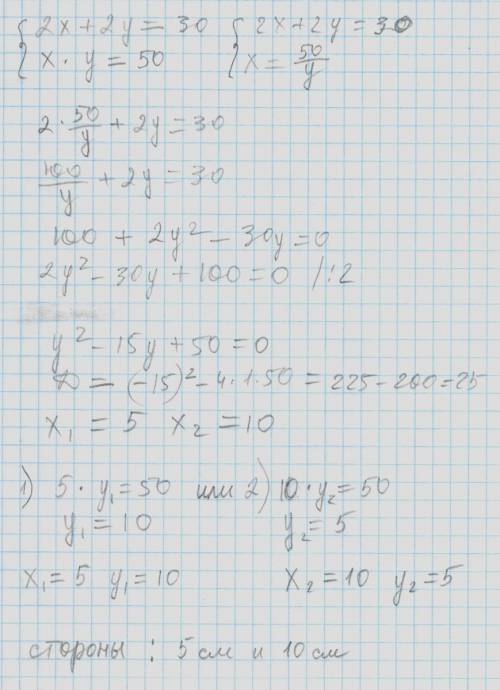 {2x+2y=30 {2x+2y=30
{x·y=50 {x=50/y
2·50/y+2y=30
100/y+2y=30
100+2y²-30y=0
2y²-30y+100=0 /:2
y²-15y+50=0
D=(-15)²-4·1·50=225-200=25
x₁=5 x₂=10
1) 5·y₁=50 или 2) 10·y₂=50
y₁=10 y₂=5
x₁=5 y₁=10 x₂=10 y₂=5
стороны: 5 см и 10 см